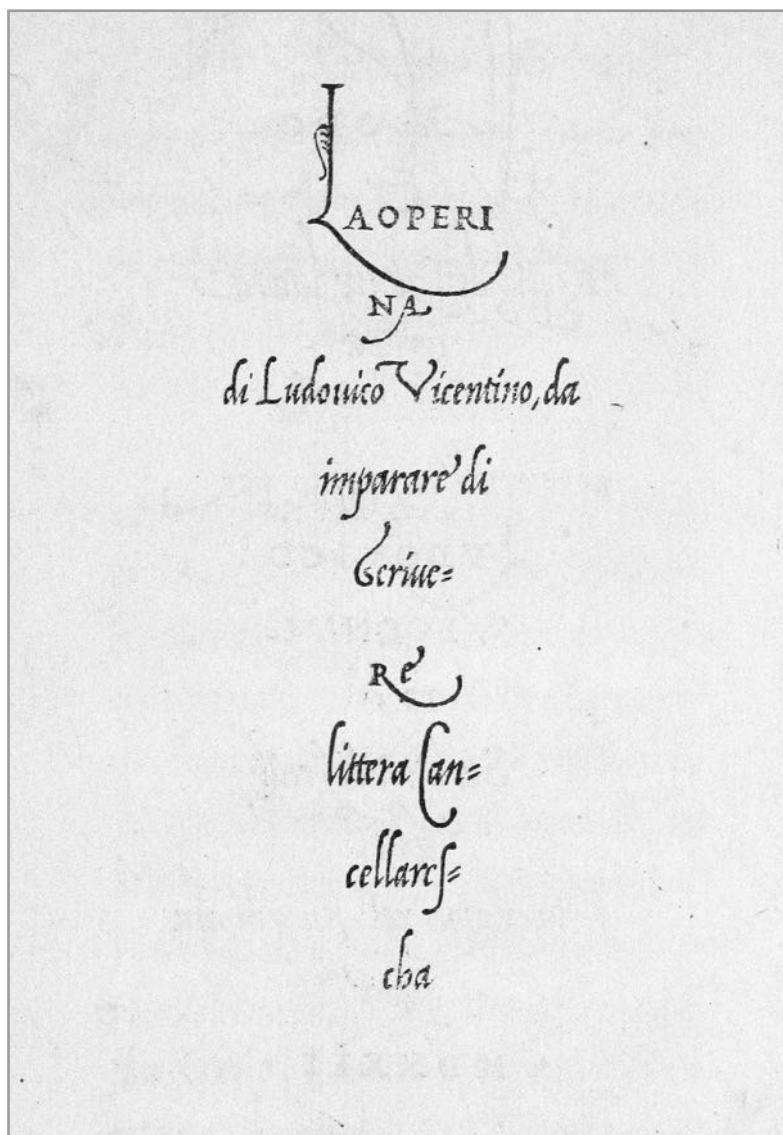 LAOPERI
NA
di Ludouico Vicentino, da
imparare di
Scriue=
Re
littera Can=
cellaresʃ=
cha